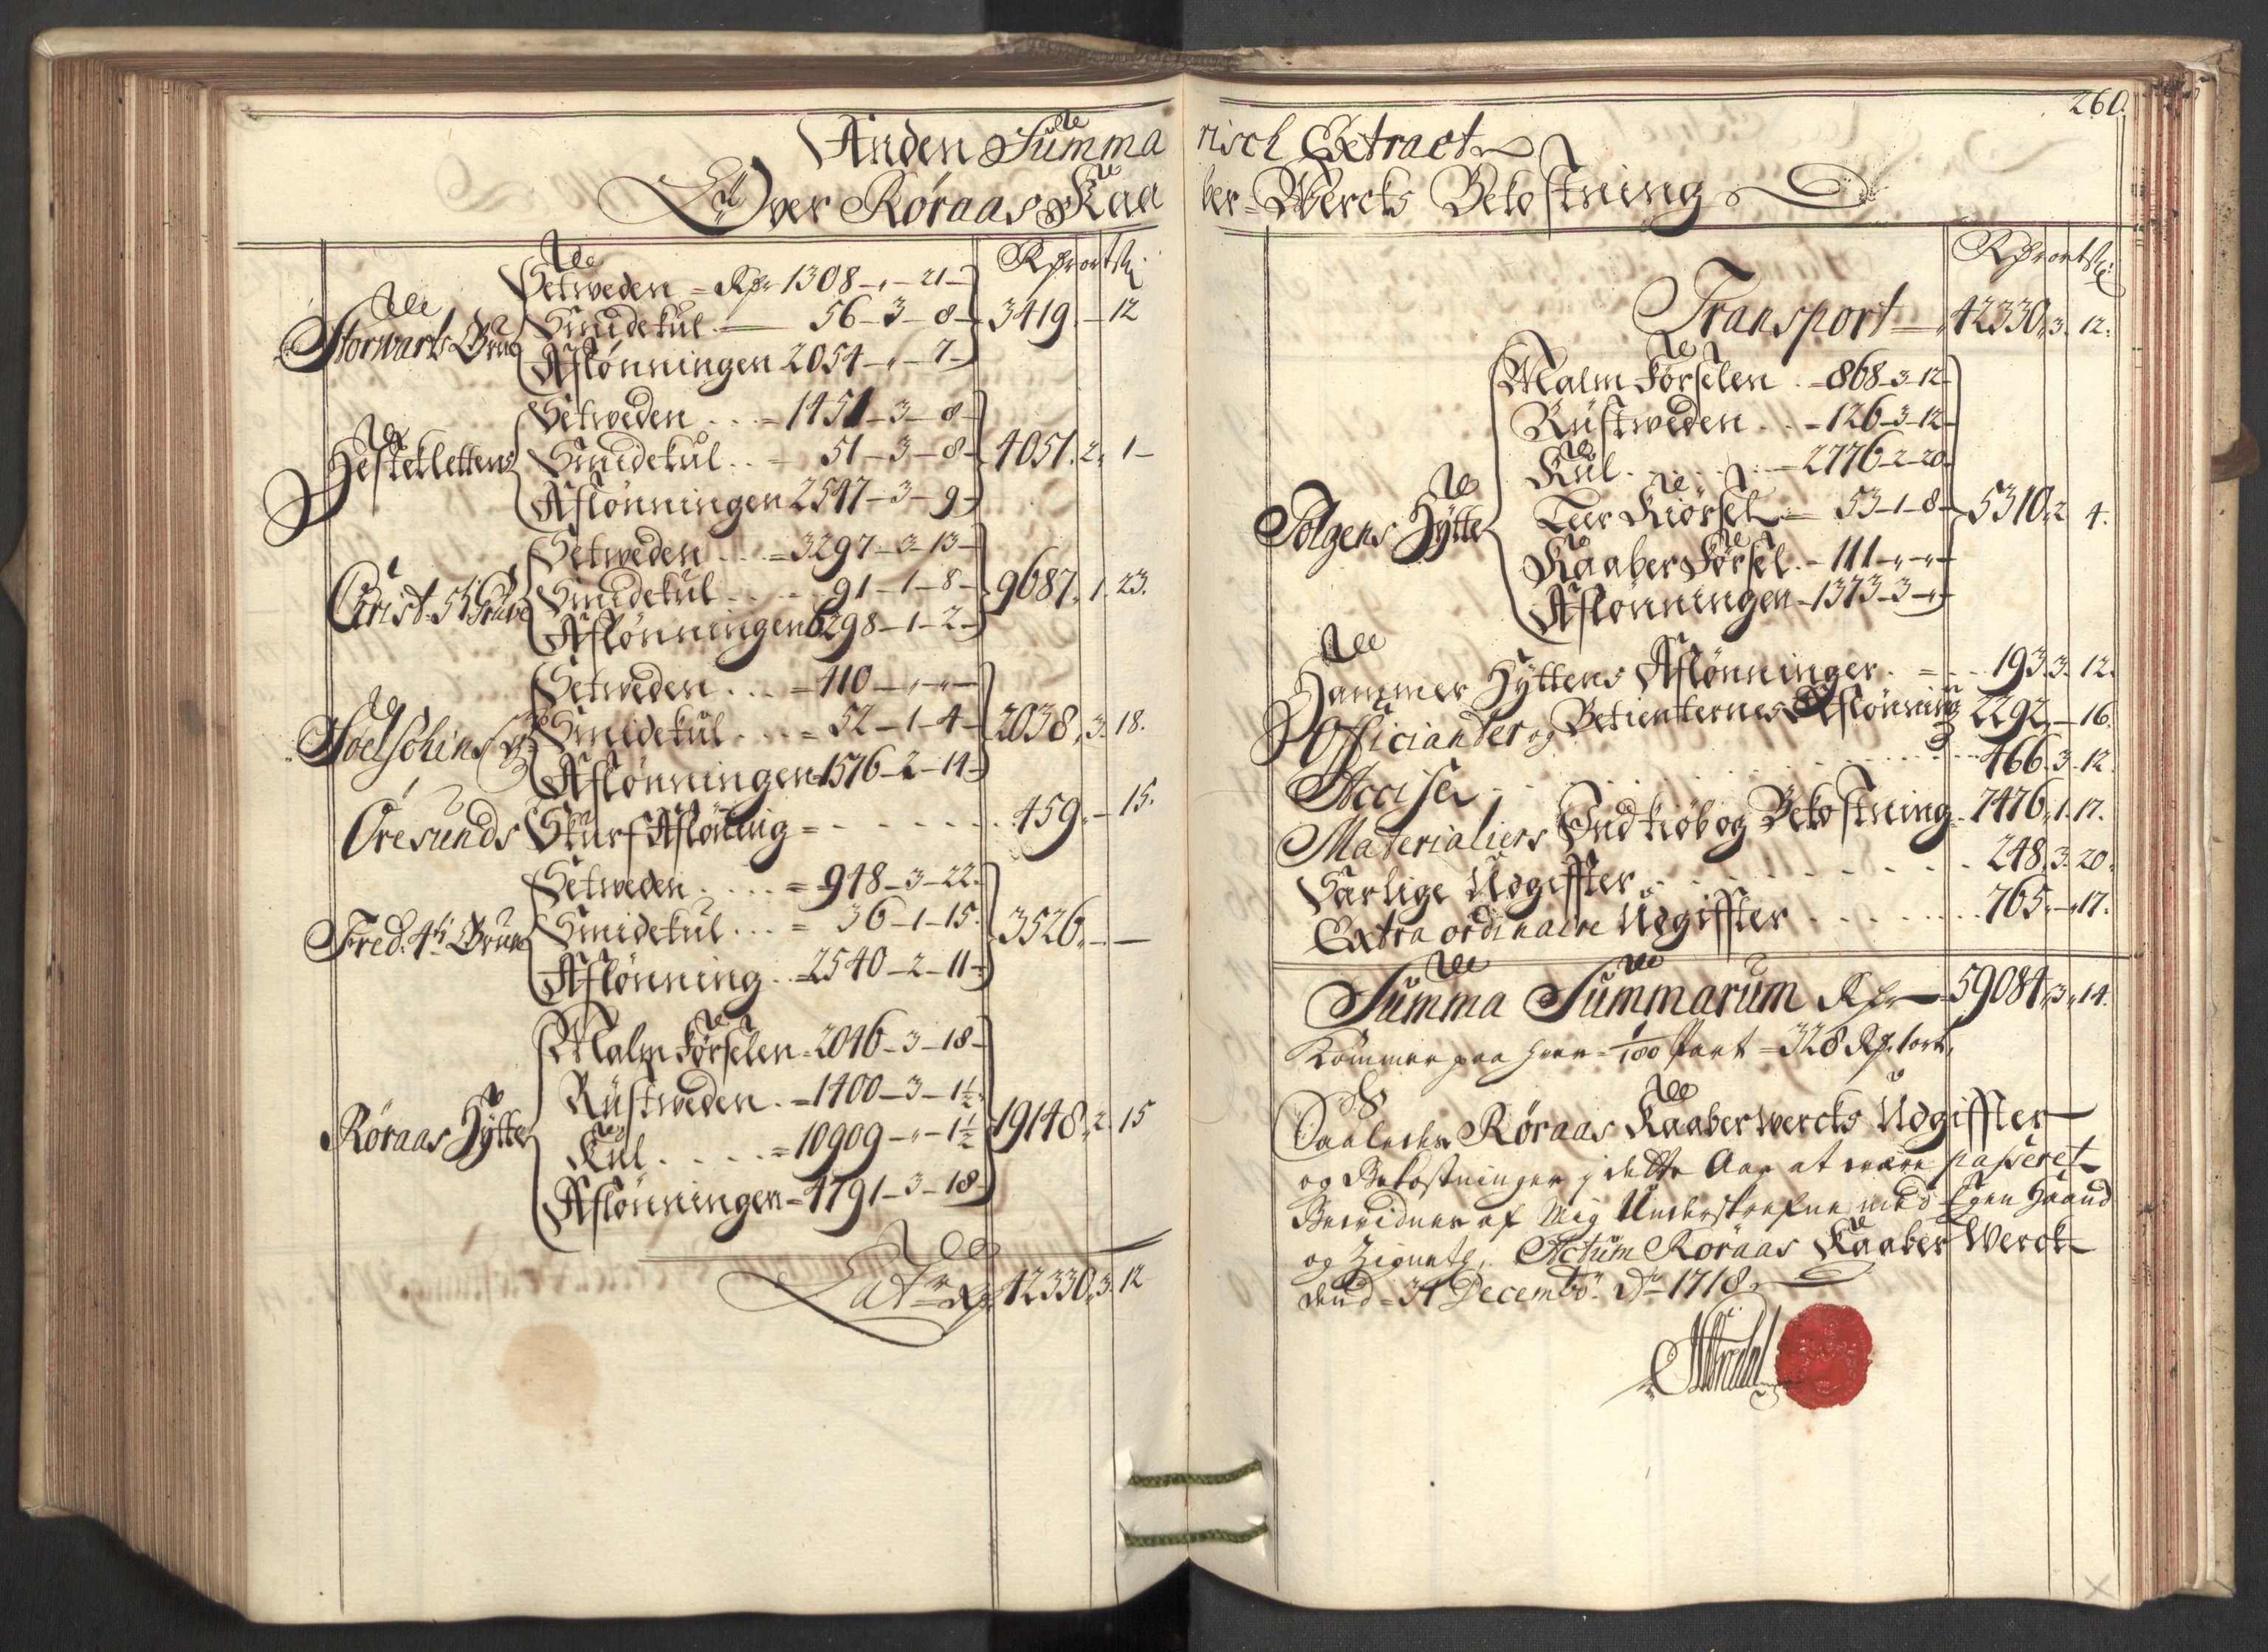 Anden Summa
Over Røraas Kaa
Rdr ort ſk:
Setweden = Rdr 1308 - „ - 21 -
Storwarts Gruv Smidekul — 56 - 3 - 8 - 3419 „ - 12
Aflønningen 2054 - „ - 7 -
Setweden . . . = 1451 - 3 - 8 -
Hestklettens Smidekul . . - 51 - 3 - 8 - 4051. 2 „ 1 -
Aflønningen 2547 - 3 - 9 -
Setweden . . . = 3297 - 3 - 13 -
Christ. 5ti Gruve Smidekul . . . . 91 - 1 - 8 - 9687 „ 1 . 23.
Aflønningen 6298 - 1 - 2 -
Setweden . . . = 410 - „ - „ -
Smidekul . . . = 52 - 1 - 4 - 2038 „ 3 . 18.
Aflønningen = 1576 - 2 - 14 -
Øresunds Skurf Afløning = - - - - - - 459 „ - 15.
Setweden . . . . = 948 - 3 - 22 -
Fred. 4ti Gruve Smidekul . . . = 36 - 1 - 15. 3526 „ - —
Aflønning . . = 2540 - 2 - 11 -
Malm Førselen = 2046 - 3 - 18 -
Rustweden . = 1400 - 3 - 1½
Røraas Hytte Kul . . . . . = 10909 - „ - 1½ 19148 „ 2 „ 15
Aflønningen = 4791 - 3 - 18 -
Lat: Rdr 42330 „ 3 . 12
260.
risch Extract
ber = Wercks Bekostning
Rdr ort ſk:
Transport — 42330 „ 3 . 12.
Malm Førselen . = 868 - 3 - 12 -
Rustweden . . = 126 - 3 - 12 -
Kul . . . . . . = 2776 - 2 - 20 -
Tolgens Hytte Teer Kiørsel — 53 - 1 - 8 - 5310 „ 2 4.
Kaaber Førsel . = 111 - „ - „ -
Aflønningen = 1373 - 3 - „ -
Hammer Hyttens Aflønninger . = . . 193 . 3 . 12.
Officianter og Betienternes Aflønning 2292 „ - 16.
Accisen . . . . . . . . . . 466 . 3 . 12.
Materialiers Indkiøb og Bekostning . 7476 „ 1 . 17.
Særlige Udgiffter . . . . . . . . 248 „ 3 . 20.
Extra ordinaire Udgiffter . . . . . . 765 „ - „ 17.
Summa Summarum Rdr — 59084 „ 3 „ 14.
Kommer paa hver = 1/180 Part = 328 Rdr 1 ort.
Saaledes Røraas Kaaberwercks Udgiffter
og Bekostninger i dette Aar at være passeret
Bevidner af Mig Underskrefne med Egen Haand
og Zignete, Actum Røraas Kaaber Werck
dend = 31 Decembr: Ao 1718